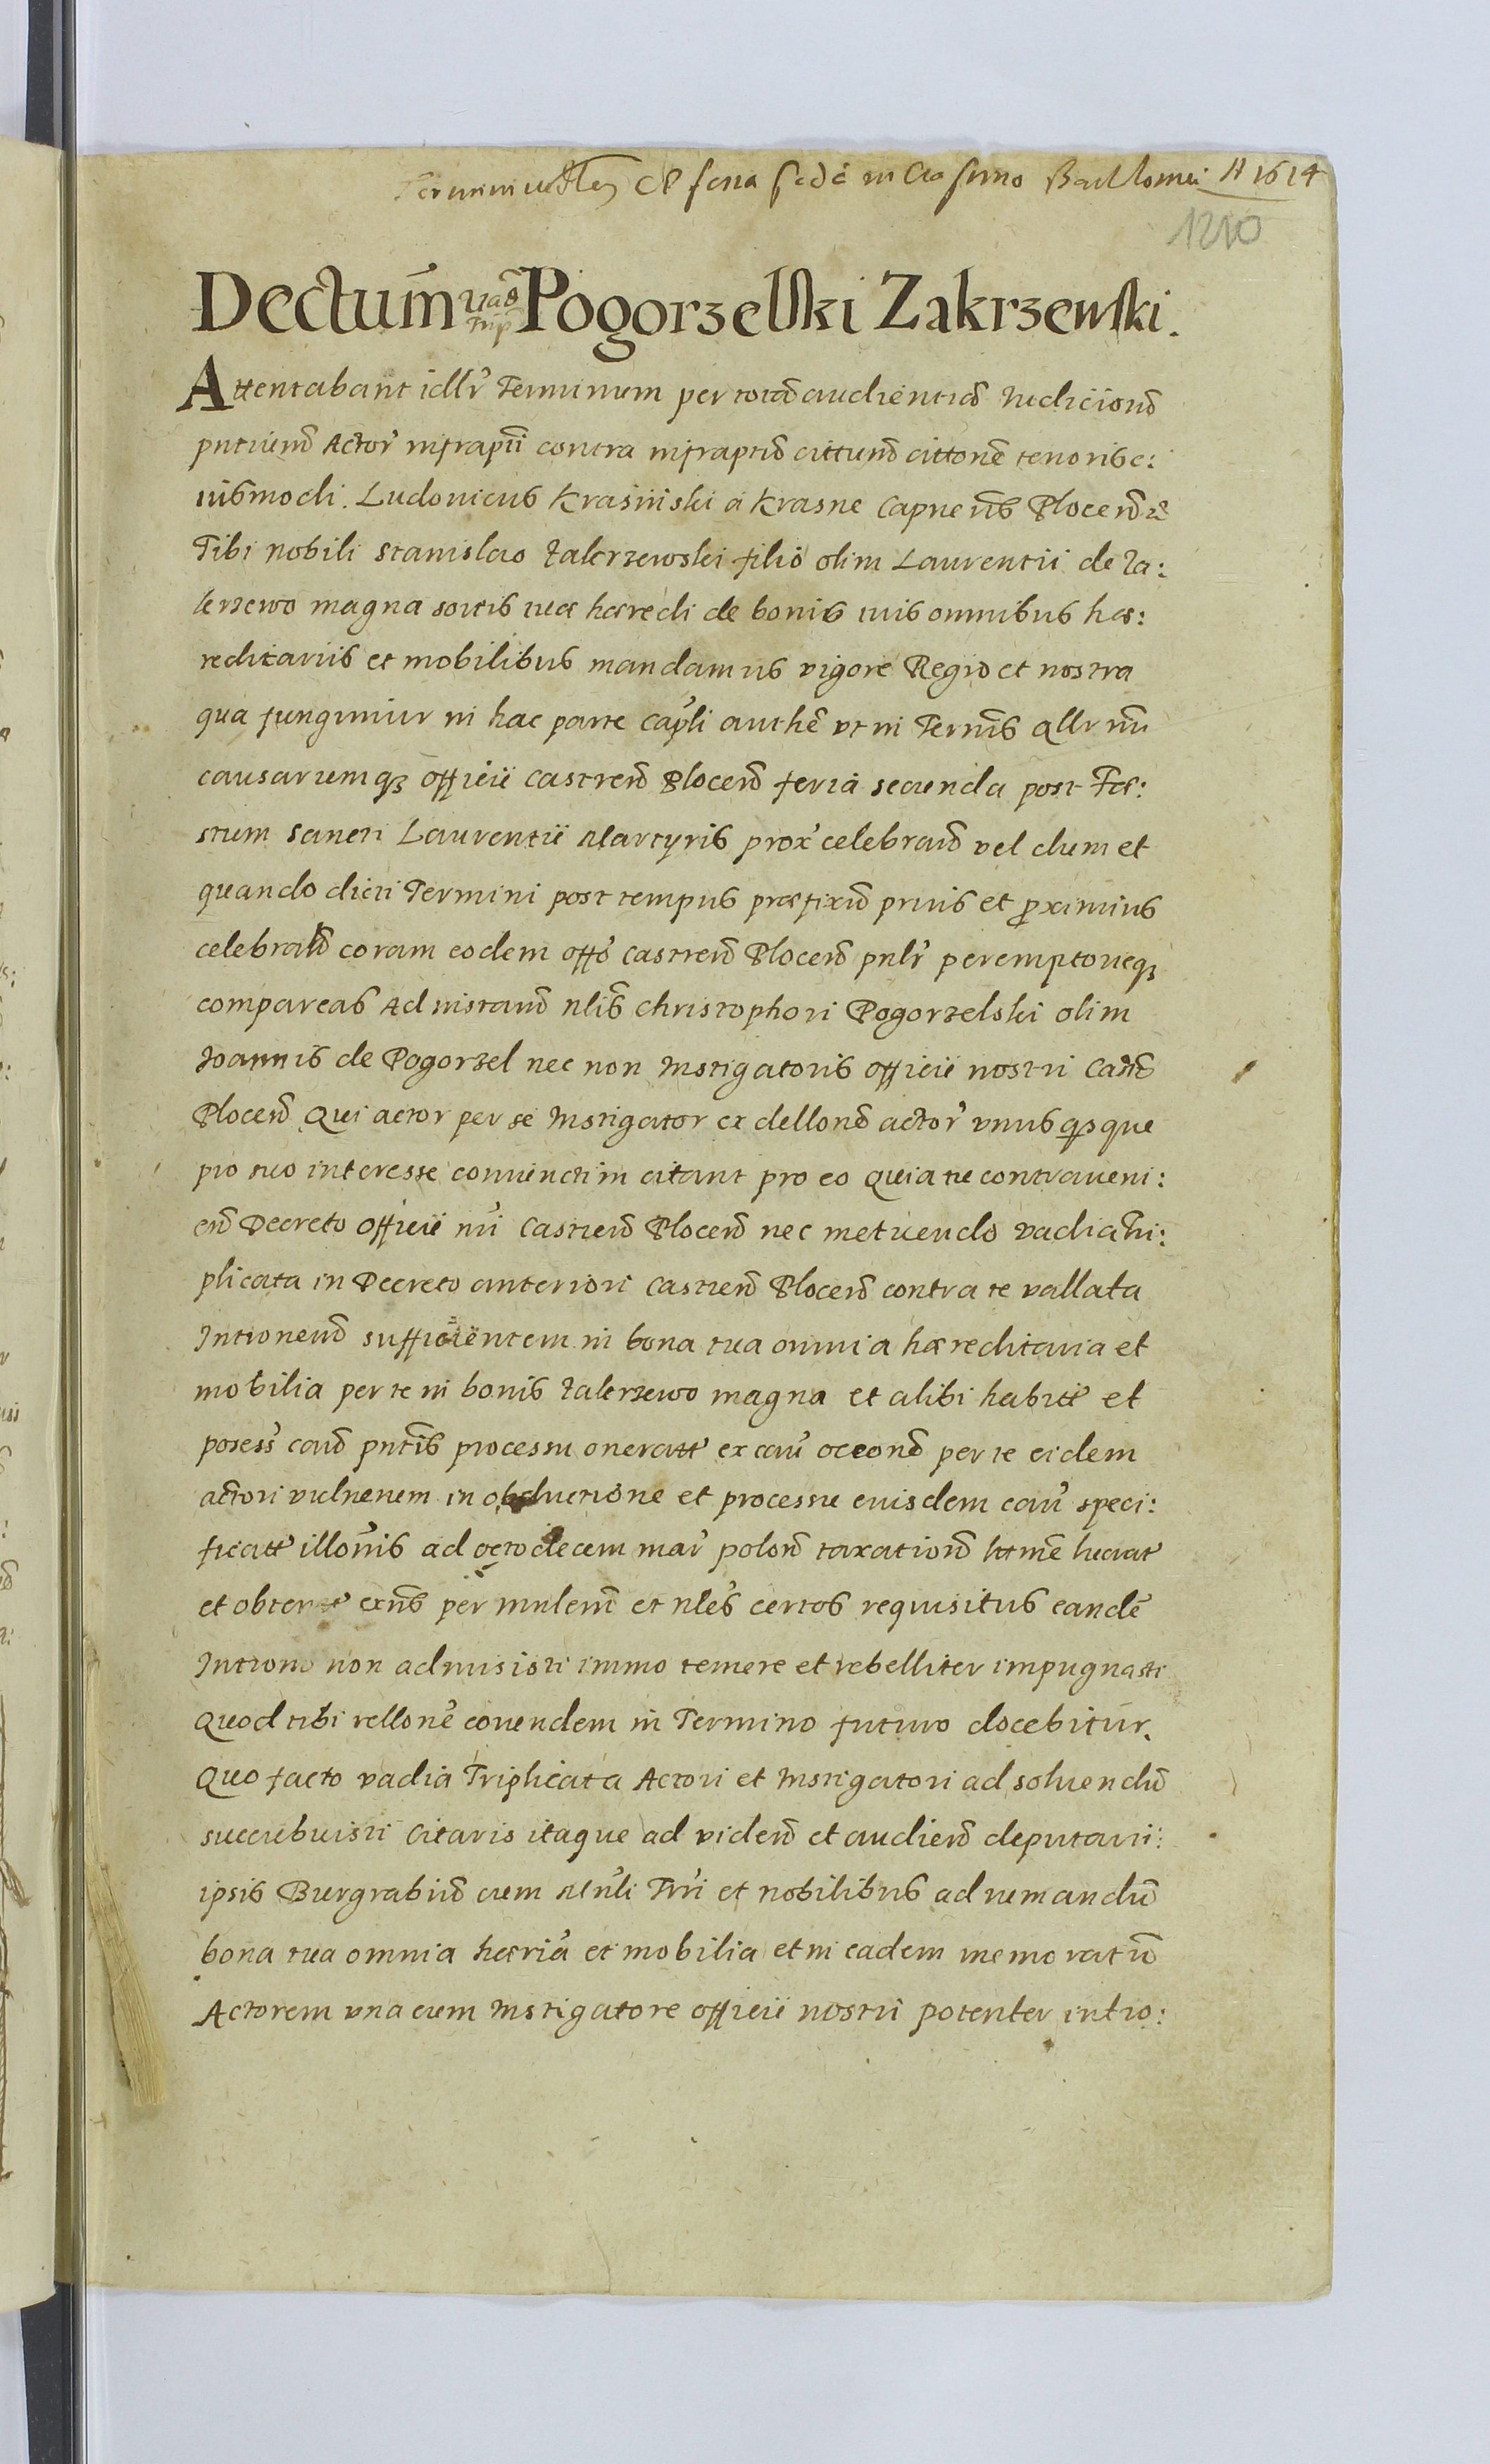 feria in Crastino Bartlomei A 1614
1210
Dectum vad trip Pogorzelski Zakrzewski.
Attentabant idllr Terminum per totam audientiam Iudiciord
pntiend Actor infrapti contra infraptd cittund cittone tenoris e:
iusmodi. Ludovicus Krasinski a Krasne Capneus Plocend
Tibi nobili Stanislao Zakrzewski filio olim Laurentii de Za:
krzewo magna sortis tuæ hæredi de bonis tuis omnibus hæ:
reditariis et mobilibus mandamus vigore Regia et nostra
qua fungimur in hac parte capli authe vt in Termis qllr nri
causarumq officii Castrend Plocend feria secunda post Fæ:
stum Sancti Laurentii Martyris prox celebrand vel dum et
quando dicti Termini post tempus præfixum prius et proximius
celebrabd coram eodem offo Castrend Plocend pnlr peremptorieq
compareas Ad instand Nlis Christophori Pogorzelski olim
Ioannis de Pogorzel nec non Instigatoris officii nostri Castr
Plocend Qui actor per se Instigator ex dellond actor vnusqsque
pro suo interesse coniunctim citant pro eo Quia tu contraueni:
end Decreto officii nri Castrend Plocend nec metuendo vadia tri:
plicata in Decreto anteriori Castrend Plocend contra te vallata
Intronend sufficientem in bona tua omnia hæreditaria et
mobilia per te in bonis Zakrzewo magna et alibi habitt et
posess caud pntis processu oneratt ex cau occond per te eidem
actori vulnerum in obductione et processu eiusdem cau speci:
ficatt illonis ad octodecem mar polond taxationd htme lucrat
et obtent exns per mnlem et nles certos requisitus eande
Introne non admisisti immo temere et rebelliter impugnasti
Quod tibi rellone eorundem in Termino futuro docebitur.
Quo facto vadia Triplicata Actori et Instigatori ad soluendu
succubuisti Citaris itaque ad vidend et audiend deputari:
ipsis Burgrabiud cum Mnli Tri et nobilibus adiumandu
bona tua omnia hæria et mobilia et in eadem memoratu
Actorem vna cum Instigatore officii nostri potenter intro: